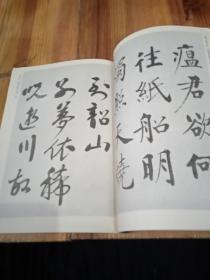 瘟君欲何
往纸船明
烛照天烧
到韶山
别梦依稀
咒逝川故